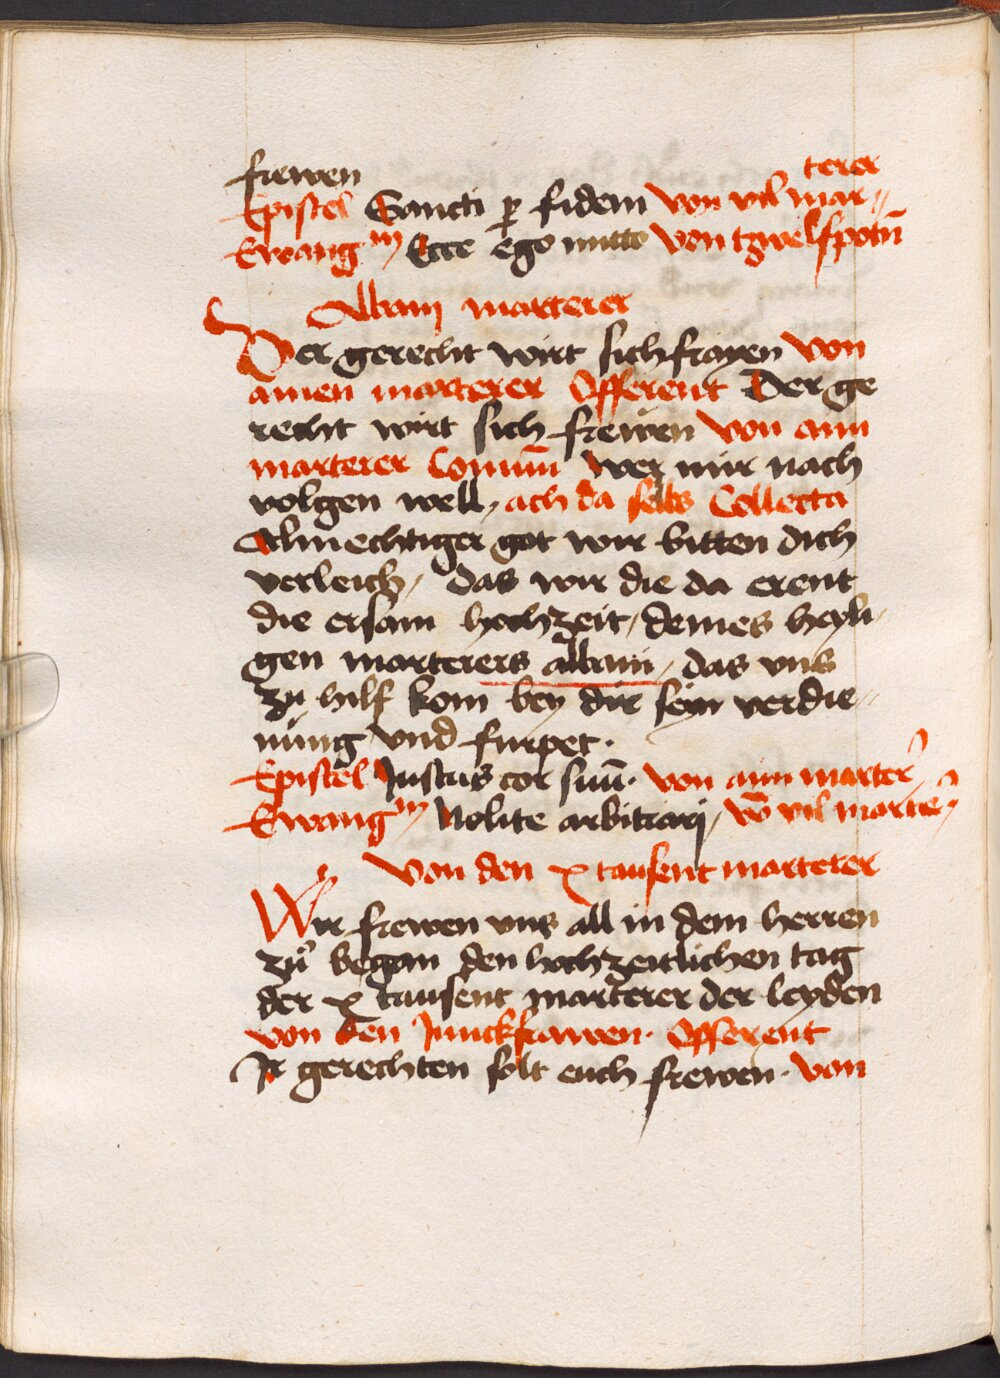 frewen terer
Epistel Sancti p̱ fidem von vil mar„
Ewangm Ecce ego mitto von tzwelfpotn̄
Albani marterer
Der gerecht wirt sich frayen von
ainen marterer Offerent Der ge
recht wirt sich frewen von aim
marterer Comūn Wer mir nach
volgen well, ach da selbs Collecta
Almechtiger got wir bitten dich
verleich, das wir die da erent
die ersam hochzeit, deines heyli„
gen marterers albani, das uns
zu hilf kom bey dir sein verdie„
nung und furpet.
Epistel Justus cor suū. von aim marter
Ewangm Nolite arbitrari, vō vil marter
Von den x tausent marterer
Wir frewen uns all in dem herren
zů began den hochzeitlichen tag
der x tausent marterer der leyden
von den Junckfrawen. Offerent
Ir gerechten solt euch frewen. von